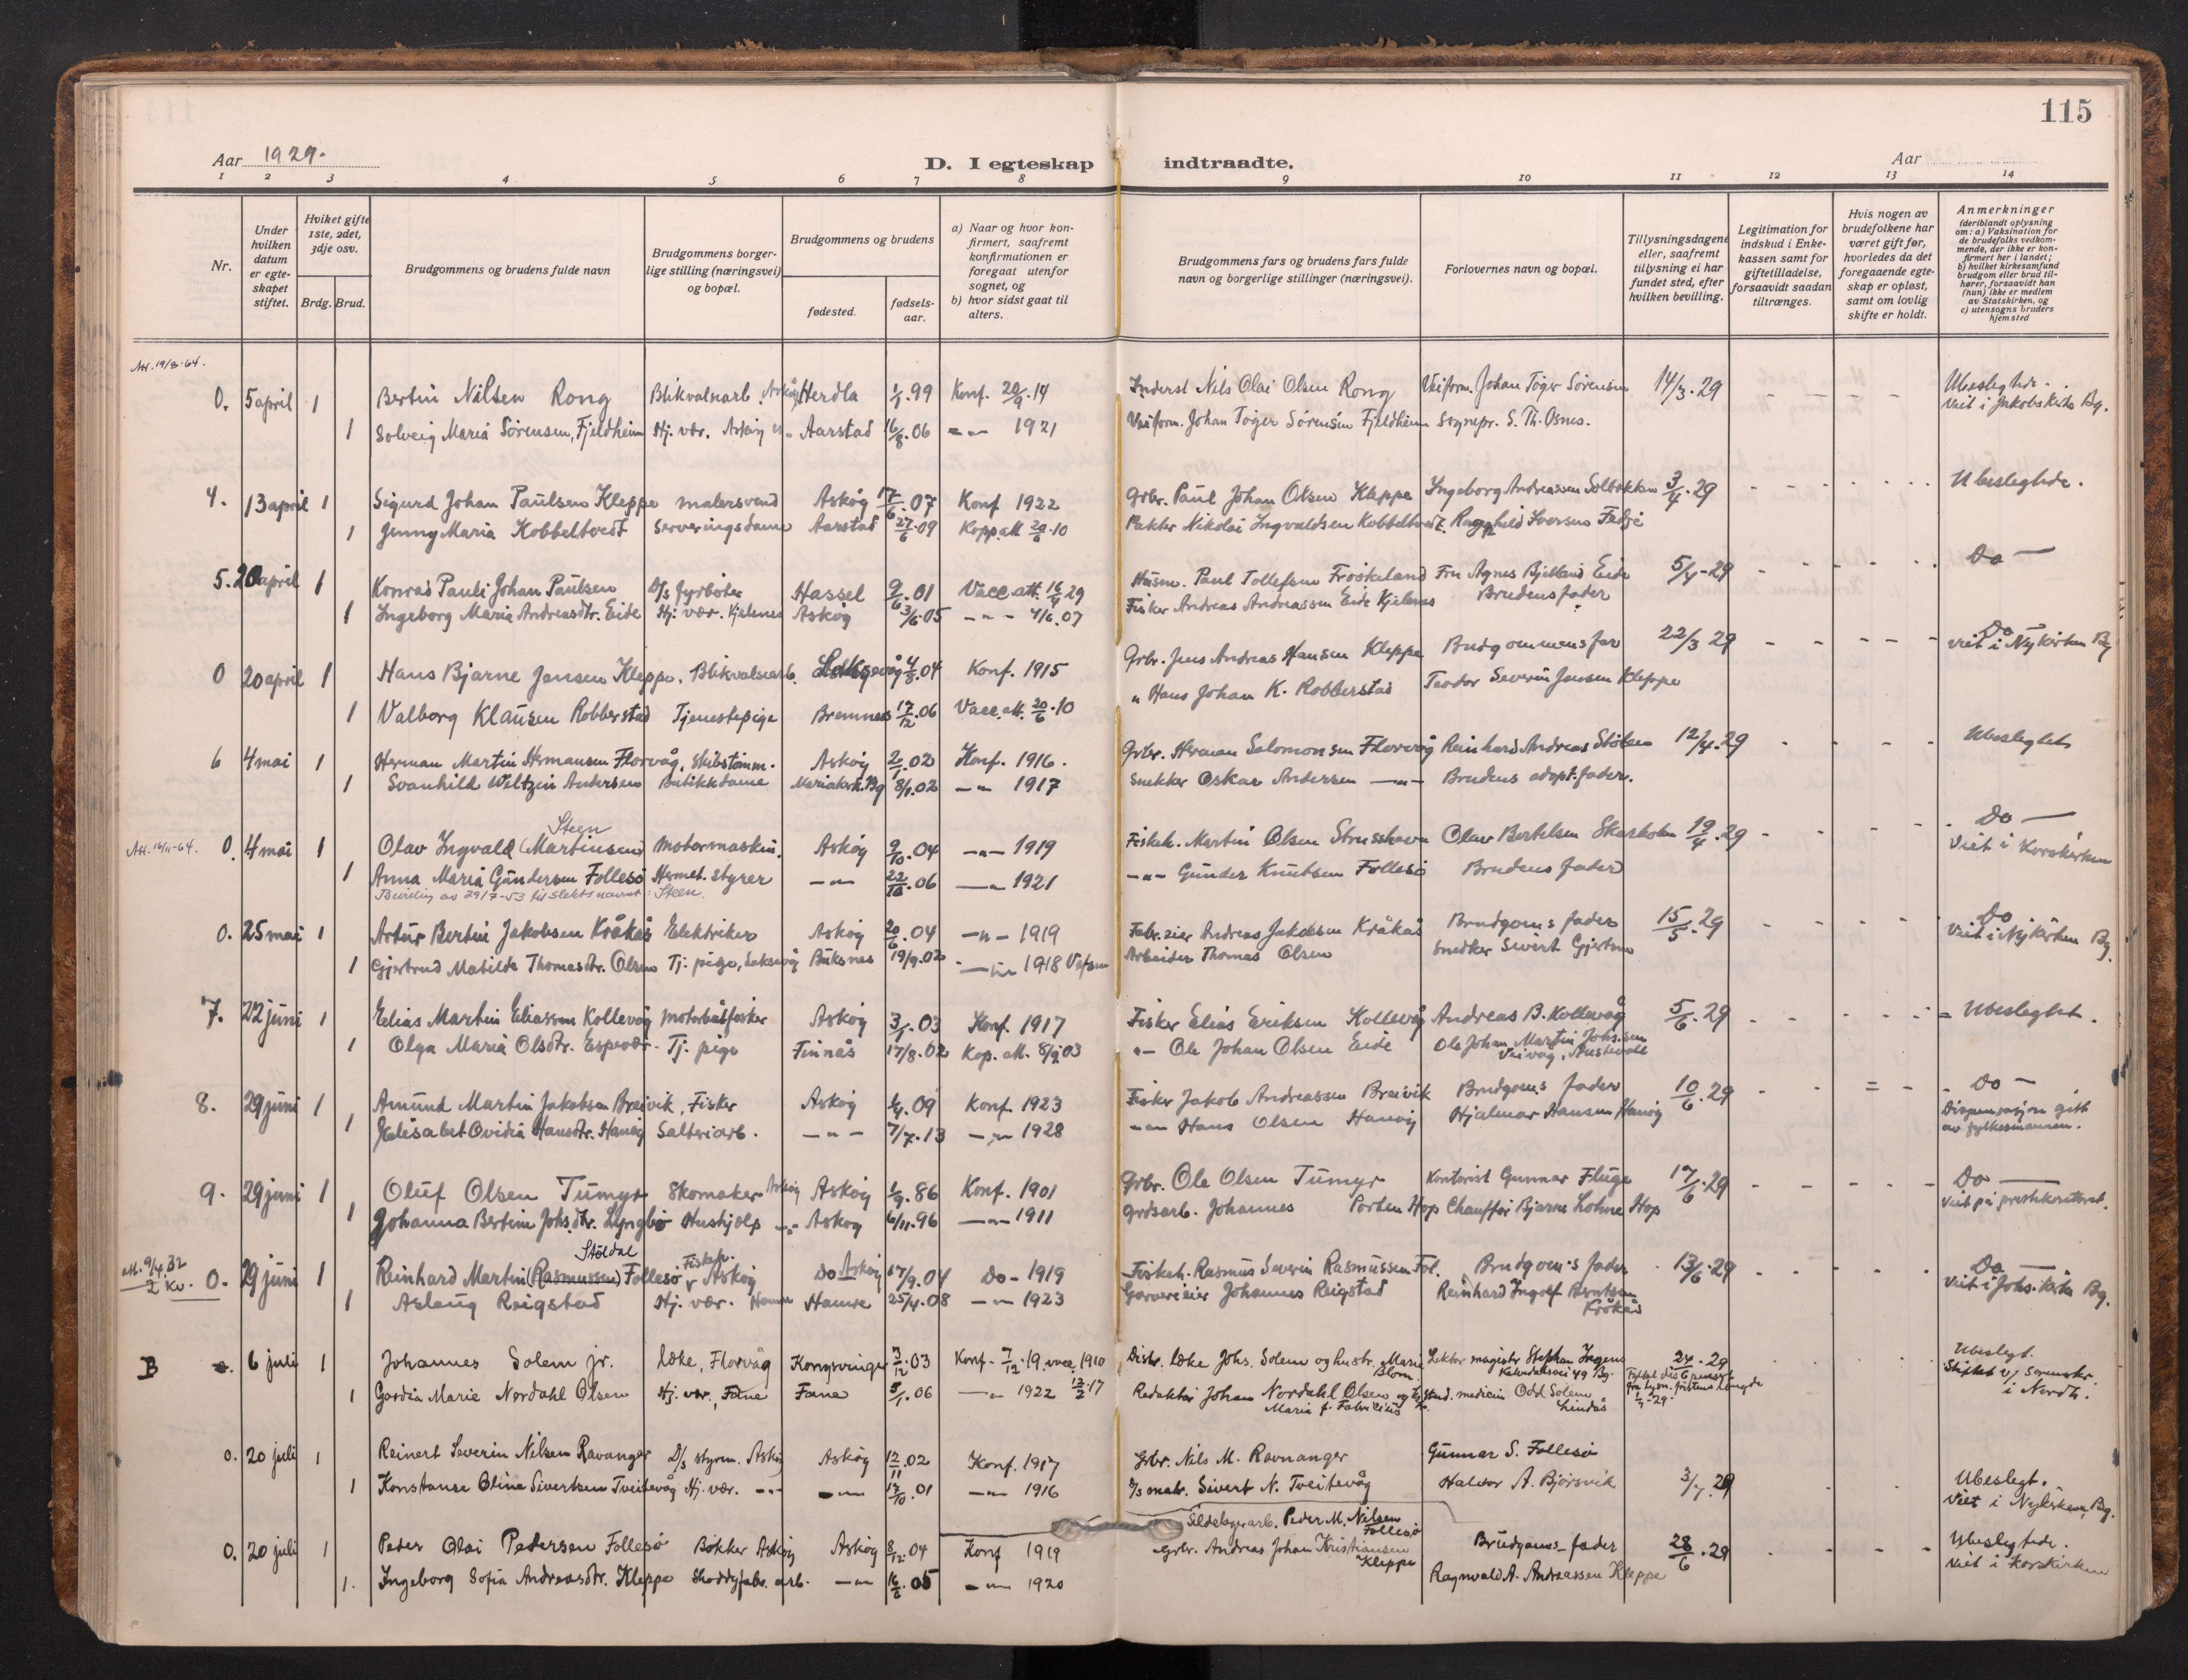 115
Aar 1929.
D. I egteskap indtraadte.
Aar
1 2 3 4 5 6 7 8 9 10 11 12 13 14
Nr.
Under hvilken datum er egteskapet stiftet.
Hvilket gifte 1ste, 2det, 3dje osv.
Brdg. Brud.
Brudgommens og brudens fulde navn
Brudgommens borgerlige stilling (næringsvei) og bopæl.
Brudgommens og brudens
fødested.
fødselsaar.
a) Naar og hvor konfirmert, saafremt konfirmationen er foregaat utenfor sognet, og
b) hvor sidst gaat til alters.
Brudgommens fars og brudens fars fulde navn og borgerlige stillinger (næringsvei).
Forlovernes navn og bopæl.
Tillysningsdagene eller, saafremt tillysning ei har fundet sted, efter hvilken bevilling.
Legitimation for indskud i Enkekassen samt for giftetilladelse, forsaavidt saadan tiltrænges.
Hvis nogen av brudefolkene har været gift før, hvorledes da det foregaaende egteskap er opløst, samt om lovlig skifte er holdt.
Anmerkninger (deriblandt oplysning om: a) Vaksination for de brudefolks vedkommende, der ikke er konfirmert her i landet; b) hvilket kirkesamfund brudgom eller brud tilhører, forsaavidt han (hun) ikke er medlem av Statskirken, og c) utensogns bruders hjemsted
Att. 19/8-64.
0. 5 april 1 Bertin Nilsen Rong Blikvalsarb. Askøy Herdla 1/1.99 Konf. 20/9.14 Inderst Nils Olai Olsen Rong Veiform. Johan Tøger Sørensen 14/3.29 Ubeslegtede. Viet i Jakobskirke Bg.
1 Solveig Maria Sørensen, Fjeldheim Hj. vær. Askøy Aarstad 16/8.06 -"- 1921 Veiform. Johan Tøger Sørensen Fjeldheim Sognepr. S. Th. Osnes.
4. 13 april 1 Sigurd Johan Paulsen Kleppe malersvend Askøy 17/6.07 Konf 1922 Grbr. Paul Johan Olsen Kleppe Ingeborg Andreassen Solbakken 3/4.29 Ubeslegtede.
1 Jenny Maria Kobbeltvedt Serveringsdame Aarstad 27/6.09 Kopp. att 20/6.10 Pakker Nikolai Ingvaldsen Kobbeltvedt Ragnhild Iversen
5. 20 april 1 Konrad Pauli Johan Paulsen D/s fyrbøter Hassel 9/6.01 Vacc. att. 16/4 29 Husm. Paul Tollefsen Frøskeland Fru Agnes Bjelland Eide 5/4-29 Do —
1 Ingeborg Maria Andreasdtr. Eide Hj. vær. Kjelenes Askøy 3/6.05 -"- 4/6.07 Fisker Andreas Andreassen Eide Kjelenes Brudens fader
0 20 april 1 Hans Bjarne Jensen Kleppe. Blikvalsearb. Laksevåg 4/8.04 Konf. 1915 Grbr. Jens Andreas Hansen Kleppe Brudgommens far 22/3 29 Do — viet i Nykirken Bg
1 Valborg Klausen Robberstad Tjenestepige Bremnes 17/12.06 Vacc. att. 20/6.10 " Hans Johan K. Robberstad Teodor Severin Jensen Kleppe
6 4 mai 1 Herman Martin Hermansen Florvåg, Skibstømm. Askøy 2/1.02 Konf. 1916. Grbr. Herman Salomonsen Florvåg Reinhard Andreas 12/4.29 Ubeslegtet
1 Svanhild Weltzin Andersen Butikkdame Mariakirk. Bg 8/1.02 -"- 1917 Snekker Oskar Andersen -"- Brudens adopt. fader.
Att. 16/11-64. 0. 4 mai 1 Olav Ingvald (Martinsen) Steen Motormaskin. Askøy 9/10.04 -"- 1919 Fiskeh. Martin Olsen Strusshavn Olav Bertelsen Skarholm 19/4.29 Do — Viet i Korskirken
1 Anna Maria Gundersen Follesø Hermet. styrer -"- 22/10.06 -"- 1921 -"- Gunder Knutsen Follesø Brudens fader
Bevilling av 29/7-53 til slektsnavnet: Steen.
0. 25 mai 1 Artur Bertin Jakobsen Kråkås Elektriker Askøy 20/6.04 -"- 1919 Fabr. eier Andreas Jakobsen Kråkås Brudgoms fader 15/5.29 Do Viet i Nykirken Bg.
1 Gjertrud Matilde Thomasdtr. Olsen Tj. pige, Laksevåg Buksnes 19/9.02 -"- 1918 Vefsen Arbeider Thomas Olsen Snedker Sivert Gjertsen
7. 22 juni 1 Elias Martin Eliassen Kollevåg Motorbåtfisker Askøy 3/1.03 Konf. 1917 Fisker Elias Eriksen Kollevåg Andreas B. Kollevåg 5/6.29 Ubeslegtet.
1 Olga Maria Olsdtr. Espevær. Tj. pige Finnås 17/8.02 Kop. att. 8/9 03 "- Ole Johan Olsen Eide Ole Johan Martin Johs.sen Veivåg, Austevoll
8. 29 juni 1 Amund Martin Jakobsen Breivik, Fisker Askøy 1/4.09 Konf. 1923 Fisker Jakob Andreassen Breivik Brudgoms fader 10/6.29 Do — Dispensasjon gitt av fylkesmannen.
1 Elisabet Ovidia Hansdtr. Hanøy Salteriarb. -"- 7/7.13 -"- 1928 -"- Hans Olsen Hanøy Hjalmar Hansen Hanøy
9. 29 juni 1 Oluf Olsen Tumyr Skomaker Askøy Askøy 1/9.86 Konf. 1901 Grbr. Ole Olsen Tumyr Kontorist Gunnar Fluge 17/6.29 Do — Viet på prestekontoret.
1 Johanna Bertine Johs.dtr. Lyngbø Hushjelp -"- Askøy 6/11.96 -"- 1911 Grdsarb. Johannes Porten Hop Chauffør Bjarne Lohne Hop
att. 9/4.32 2 Kv. 0. 29 juni 1 Reinhard Martin (Rasmussen) Støldal Follesø Fiskeh. Askøy Do Askøy 17/9.04 Do - 1919 Fiskeh. Rasmus Severin Rasmussen Fol. Brudgom's fader 13/6.29 Do — Viet i Johs. kirke Bg.
1 Aslaug Reigstad Hj. vær. Hamre Hamre 25/4.08 -"- 1923 Garverieier Johannes Reigstad Reinhard Ingolf Berntsen Kråkås
B 0. 6 juli 1 Johannes Solem jr. læke, Florvåg Kongsvinger 3/12.03 Konf. 7/12.19 vacc. 1910 Distr. læke Johs. Solem og hustr. Marie Blom Lektor magister Stephan Kalvedalsvei 49 Bg. 24/.29 Ubeslegt. Skiftet v/ sorenskr. i Nordh.
1 Gordia Marie Nordahl Olsen Hj. vær. Fane Fane 5/1.06 -"- 1922 12/2.17 Redaktør Johan Nordahl Olsen og h. Maria f. Fabricius Stud. medicin Odd Solem Lindås
0. 20 juli 1 Reinert Severin Nilsen Ravanger D/s styrm. Askøy Askøy 12/11.02 Konf. 1917 Grbr. Nils M. Ravnanger Gunnar S. Follesø
1 Konstanse Oline Sivertsen Tveitevåg Hj. vær. -"- -"- 17/10.01 -"- 1916 D/s matr. Sivert N. Tveitevåg Halvor A. Bjørsvik 3/7.29 Ubeslegt. Viet i Nykirken, Bg.
0. 20 juli 1 Peder Olai Pedersen Follesø Bøkker Askøy Askøy 8/12.04 Konf 1919 Sildolgerarb. Peder M. Nilsen Follesø Brudgoms- fader 28/6.29 Ubeslegtede. Viet i Korskirken
1. Ingeborg Sofia Andreasdtr. Kleppe Shoddyfabr. arb. -"- 16/6.05 -"- 1920 Grbr. Andreas Johan Kristiansen Kleppe Ragnvald A. Andreassen Kleppe